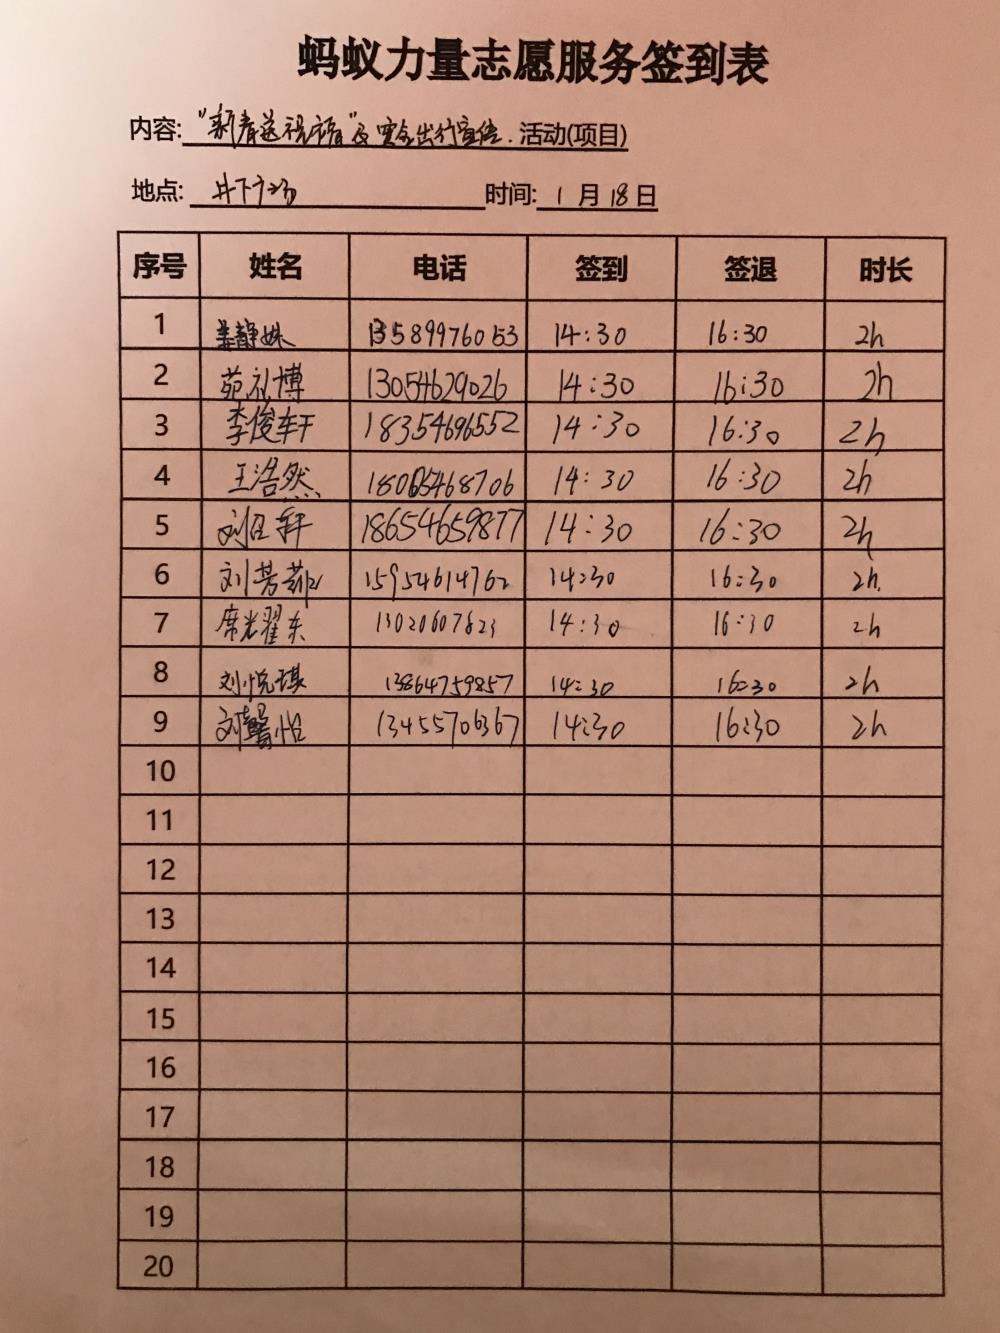 蚂蚁力量志愿服务签到表
内容: "新春送祝福"及安全出行宣传. 活动(项目)
地点: 井下广场 时间: 1 月 18 日
序号 姓名 电话 签到 签退 时长
1 姜静姝 13589976053 14:30 16:30 2h
2 苑礼博 13054629026 14:30 16:30 2h
3 李俊轩 18354696552 14:30 16:30 2h
4 王浩然 18065468706 14:30 16:30 2h
5 刘 轩 18654659877 14:30 16:30 2h
6 刘芳菲 15954614762 14:30 16:30 2h
7 席光耀东 13020607623 14:30 16:30 2h
8 刘悦琪 13864759857 14:30 16:30 2h
9 刘馨怡 13455706367 14:30 16:30 2h
10
11
12
13
14
15
16
17
18
19
20